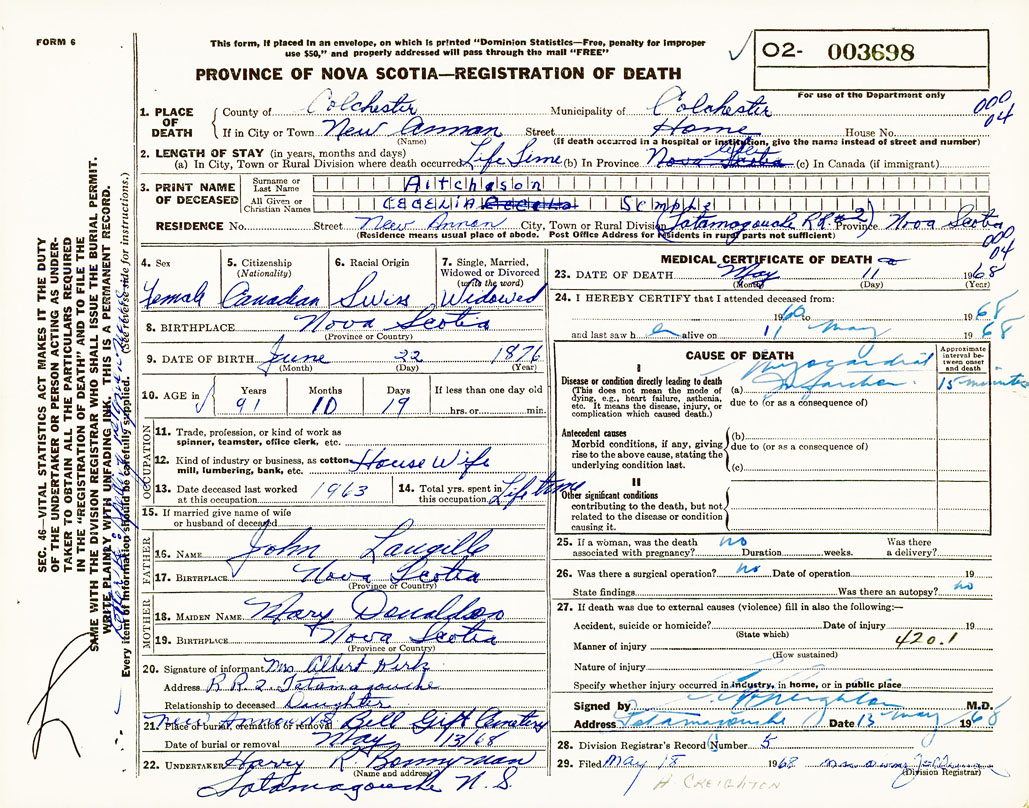 FORM 6
This form, if placed in an envelope, on which is printed "Dominion Statistics—Free, penalty for improper
use $50," and properly addressed will pass through the mail "FREE"
PROVINCE OF NOVA SCOTIA—REGISTRATION OF DEATH
O2- 003698
For use of the Department only
000
04
1. PLACE OF DEATH
County of Colchester Municipality of Colchester
If in City or Town New Annan Street Home House No.
(Name) (If death occurred in a hospital or institution, give the name instead of street and number)
2. LENGTH OF STAY (in years, months and days)
(a) In City, Town or Rural Division where death occurred Life Time (b) In Province Nova Scotia (c) In Canada (if immigrant)
3. PRINT NAME OF DECEASED
Surname or Last Name Aitcheson
All Given or Christian Names CECELIA Semple
RESIDENCE No. Street New Annan City, Town or Rural Division (Tatamagouche R.R. #2) Province Nova Scotia
(Residence means usual place of abode. Post Office Address for residents in rural parts not sufficient)
000
04
4. Sex Female
5. Citizenship (Nationality) Canadian
6. Racial Origin Swiss
7. Single, Married, Widowed or Divorced (write the word) Widowed
8. BIRTHPLACE Nova Scotia
(Province or Country)
9. DATE OF BIRTH June 22 1876
(Month) (Day) (Year)
10. AGE in Years 91 Months 10 Days 19 If less than one day old hrs. or min.
OCCUPATION
11. Trade, profession, or kind of work as spinner, teamster, office clerk, etc.
12. Kind of industry or business, as cotton mill, lumbering, bank, etc. House Wife
13. Date deceased last worked at this occupation 1963
14. Total yrs. spent in this occupation Lifetime
15. If married give name of wife or husband of deceased
FATHER
16. NAME John Langille
17. BIRTHPLACE Nova Scotia
(Province or Country)
MOTHER
18. MAIDEN NAME Mary Donaldson
19. BIRTHPLACE Nova Scotia
(Province or Country)
20. Signature of informant Mrs Albert Kirk
Address R.R. 2. Tatamagouche
Relationship to deceased Daughter
21. Place of burial, cremation or removal New Annan N.S. Bell Grft Cemetery
Date of burial or removal May 13/68
22. UNDERTAKER Harry R. Bonnyman
(Name and address)
Tatamagouche N.S.
MEDICAL CERTIFICATE OF DEATH
23. DATE OF DEATH May 11 1968
(Month) (Day) (Year)
24. I HEREBY CERTIFY that I attended deceased from:
1960 to 1968
and last saw h er alive on 11 May 1968
CAUSE OF DEATH
Approximate interval between onset and death
I
Disease or condition directly leading to death
(This does not mean the mode of dying, e.g., heart failure, asthenia, etc. It means the disease, injury, or complication which caused death.)
(a) Myocardial Infarction 15 minutes
due to (or as a consequence of)
Antecedent causes
Morbid conditions, if any, giving rise to the above cause, stating the underlying condition last.
(b)
due to (or as a consequence of)
(c)
II
Other significant conditions
contributing to the death, but not related to the disease or condition causing it.
25. If a woman, was the death associated with pregnancy? no Duration weeks. Was there a delivery?
26. Was there a surgical operation? no Date of operation 19
State findings Was there an autopsy? no
27. If death was due to external causes (violence) fill in also the following:—
Accident, suicide or homicide? Date of injury 19
(State which)
Manner of injury 420.1
(How sustained)
Nature of injury
Specify whether injury occurred in industry, in home, or in public place
Signed by Creighton M.D.
Address Tatamagouche Date 13 May 1968
28. Division Registrar's Record Number 5
29. Filed May 18 1968
(Division Registrar)
H CREIGHTON
SEC. 46—VITAL STATISTICS ACT MAKES IT THE DUTY
OF THE UNDERTAKER OR PERSON ACTING AS UNDER-
TAKER TO OBTAIN ALL THE PARTICULARS REQUIRED
IN THE "REGISTRATION OF DEATH" AND TO FILE THE
SAME WITH THE DIVISION REGISTRAR WHO SHALL ISSUE THE BURIAL PERMIT.
WRITE PLAINLY WITH UNFADING INK. THIS IS A PERMANENT RECORD.
Every item of information should be carefully supplied. (See reverse side for instructions.)